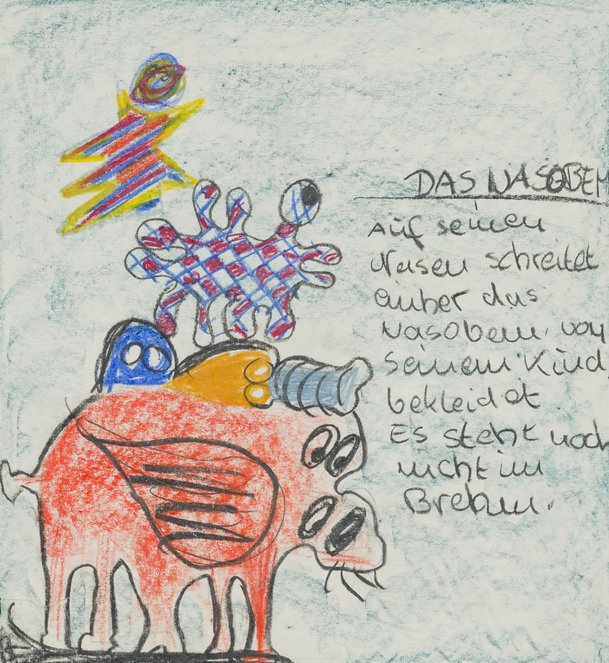 DAS NASOBEM
Auf seinen
Nasen schreitet
einher das
Nasobem. von
seinem Kind
bekleidet
Es steht noch
nicht im
Brehm.